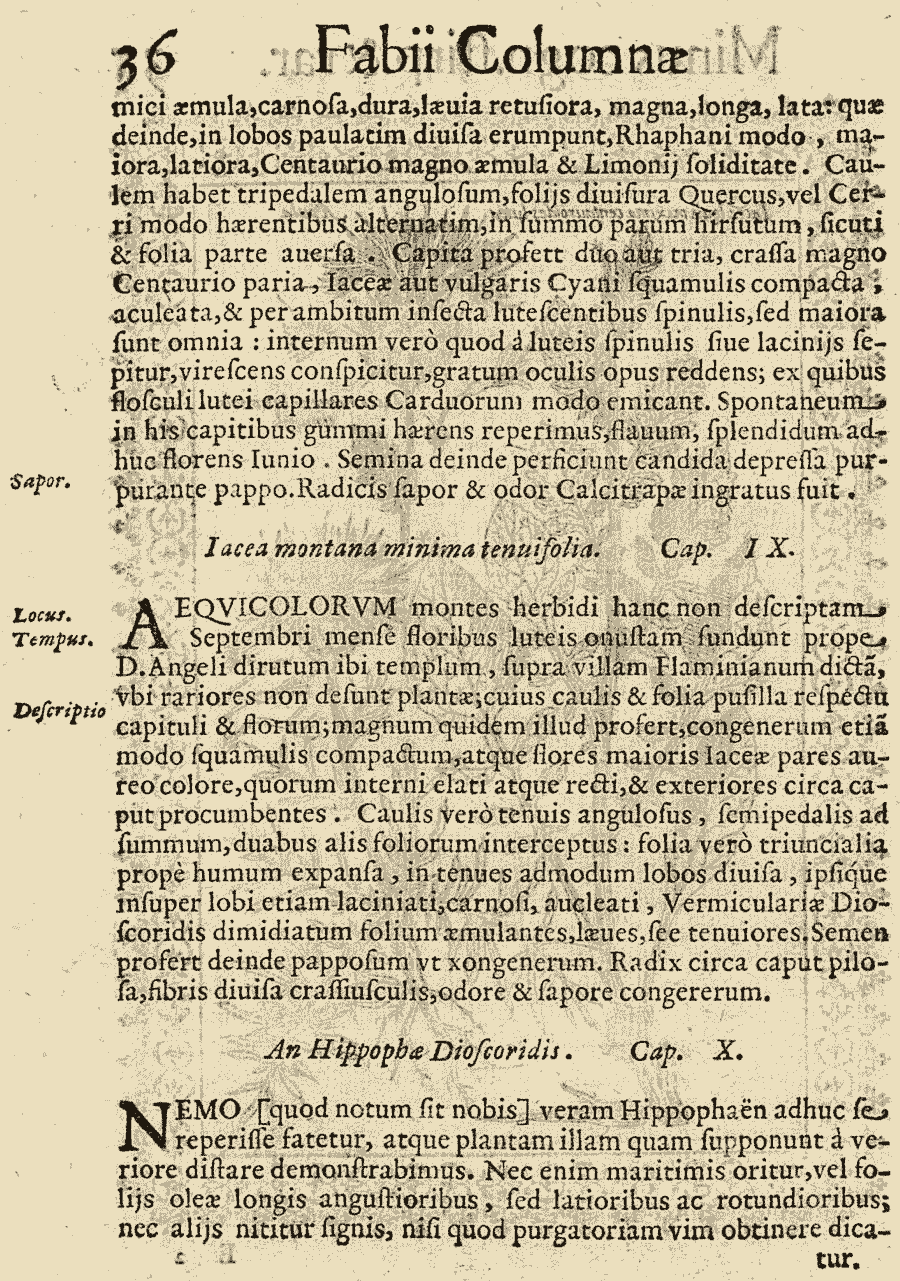 36 Fabii Columnæ
mici æmula,carnoſa,dura,læuia retuſiora, magna,longa, lata: quæ
deinde,in lobos paulatim diuiſa erumpunt,Rhaphani modo , ma-
iora,latiora,Centaurio magno æmula & Limonij ſoliditate . Cau-
lem habet tripedalem anguloſum,folijs diuiſura Quercus,vel Cer-
ri modo hærentibus alternatim,in ſummo parum hirſutum , ſicuti
& folia parte auerſa . Capita profett duo aut tria, craſſa magno
Centaurio paria , Iaceæ aut vulgaris Cyani ſquamulis compacta ;
aculeata,& per ambitum inſecta luteſcentibus ſpinulis,ſed maiora
ſunt omnia : internum verò quod à luteis ſpinulis ſiue lacinijs ſe-
pitur,vireſcens conſpicitur,gratum oculis opus reddens; ex quibus
floſculi lutei capillares Carduorum modo emicant. Spontaneum
in his capitibus gummi hærens reperimus,flauum, ſplendidum ad-
huc florens Iunio . Semina deinde perficiunt candida depreſſa pur-
Sapor.
purante pappo.Radicis ſapor & odor Calcitrapæ ingratus fuit .
Iacea montana minima tenuifolia. Cap. I X.
Locus.
AEQVICOLORVM montes herbidi hanc non deſcriptam
Tempus.
Septembri menſe floribus luteis onuſtam fundunt prope
D.Angeli dirutum ibi templum , ſupra villam Flaminianum dictā,
vbi rariores non deſunt plantæ;cuius caulis & folia puſilla reſpectu
Deſcriptio
capituli & florum;magnum quidem illud profert,congenerum etiā
modo ſquamulis compactum,atque flores maioris Iaceæ pares au-
reo colore,quorum interni elati atque recti,& exteriores circa ca-
put procumbentes . Caulis verò tenuis anguloſus , ſemipedalis ad
ſummum,duabus alis foliorum interceptus : folia verò triuncialia
propè humum expanſa , in tenues admodum lobos diuiſa , ipſiq́ue
inſuper lobi etiam laciniati,carnoſi, aucleati , Vermiculariæ Dio-
ſcoridis dimidiatum folium æmulantes,læues,ſee tenuiores.Semen
profert deinde pappoſum vt xongenerum. Radix circa caput pilo-
ſa,fibris diuiſa craſſiuſculis,odore & ſapore congererum.
An Hippophæ Dioſcoridis . Cap. X.
NEMO [quod notum ſit nobis] veram Hippophaën adhuc ſe
reperiſſe fatetur, atque plantam illam quam ſupponunt à ve-
riore diſtare demonſtrabimus. Nec enim maritimis oritur,vel fo-
lijs oleæ longis anguſtioribus , ſed latioribus ac rotundioribus;
nec alijs nititur ſignis, niſi quod purgatoriam vim obtinere dica-
tur.